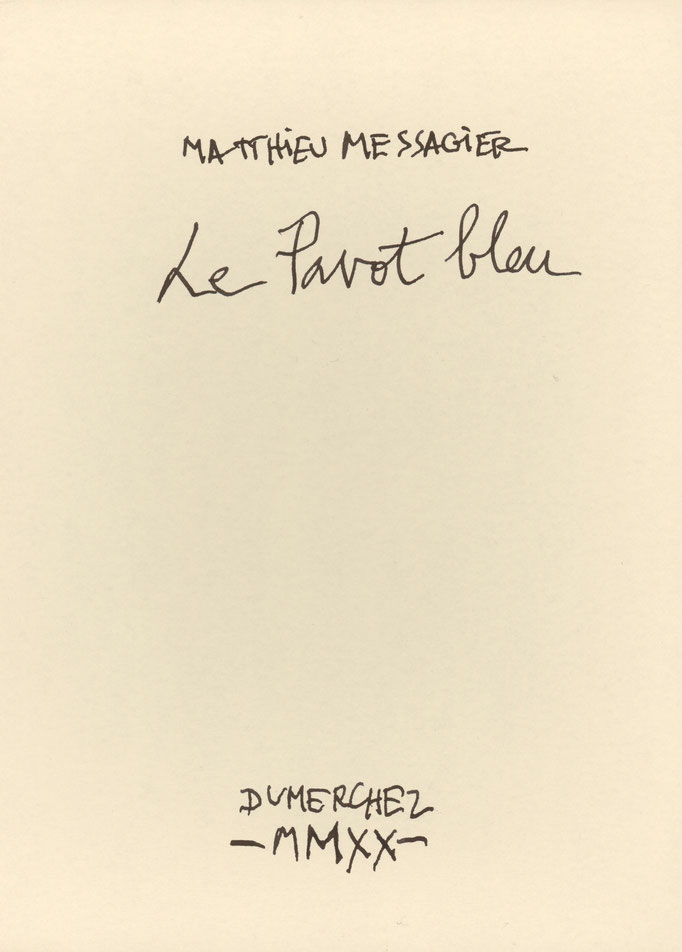 MATTHIEU MESSAGIER
Le Pavot bleu
DUMERCHEZ
—MMXX—